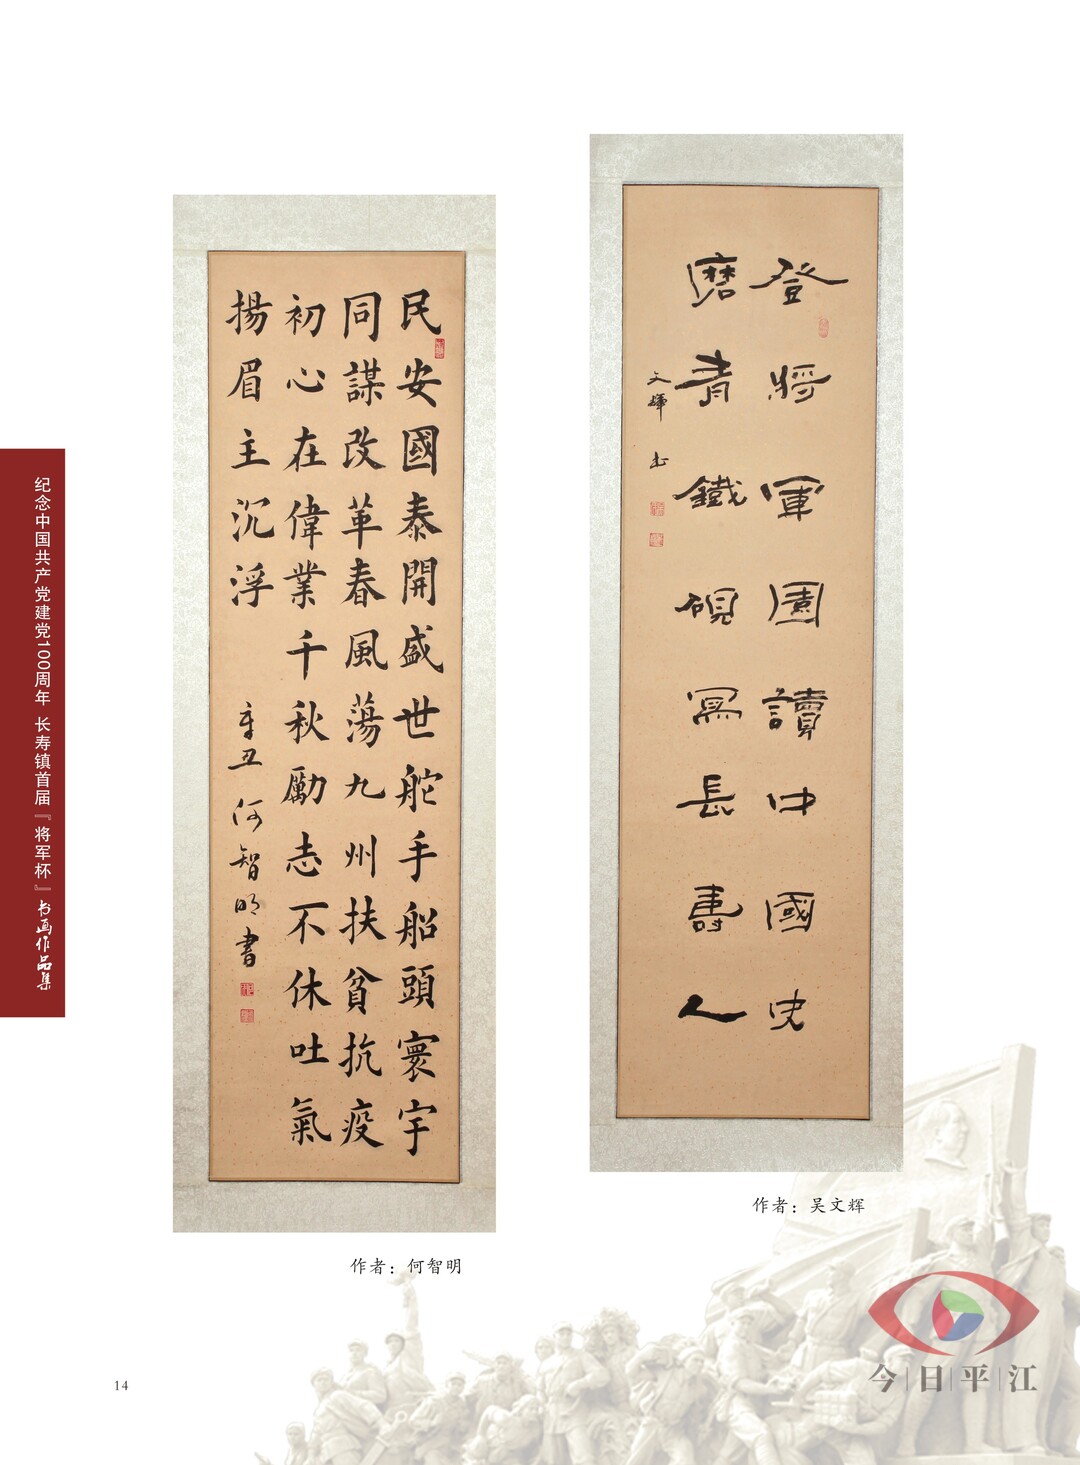 纪念中国共产党建党100周年 长寿镇首届『将军杯』书画作品集
登將軍園讀中國史
磨青鐵硯寫長壽人
文輝 书
作者：吴文辉
民安國泰開盛世舵手船頭寰宇
同謀改革春風蕩九州扶貧抗疫
初心在偉業千秋勵志不休吐氣
揚眉主沉浮
辛丑 何智明書
作者：何智明
14
今日平江